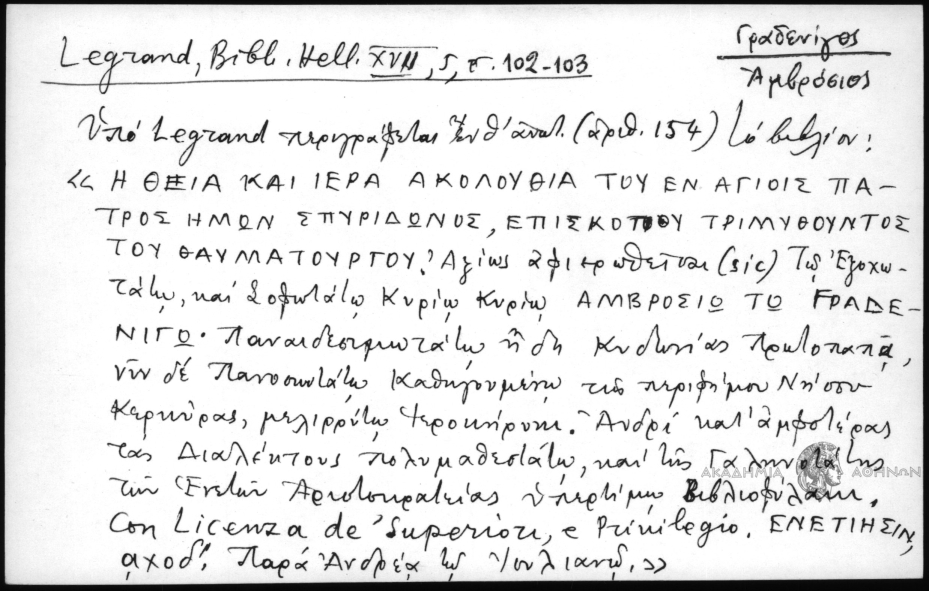 Γραδενίγος
Ἀμβρόσιος
Legrand, Bibl. Hell. XVII, 5, σ. 102-103
Ὑπό Legrand περιγράφεται (ἀριθ. 154) τό βιβλίον:
« Η ΘΕΙΑ ΚΑΙ ΙΕΡΑ ΑΚΟΛΟΥΘΙΑ ΤΟΥ ΕΝ ΑΓΙΟΙΣ ΠΑ-
ΤΡΟΣ ΗΜΩΝ ΣΠΥΡΙΔΩΝΟΣ, ΕΠΙΣΚΟΠΟΥ ΤΡΙΜΥΘΟΥΝΤΟΣ
ΤΟΥ ΘΑΥΜΑΤΟΥΡΓΟΥ. Ἀξίως ἀφιερωθεῖσαι (sic) Τῷ Ἐξοχω-
τάτῳ, καί Σοφωτάτῳ Κυρίῳ Κυρίῳ ΑΜΒΡΟΣΙΩ ΤΩ ΓΡΑΔΕ-
ΝΙΓΩ. Παναιδεσιμωτάτῳ ἤδη Κυδωνίας Πρωτοπαπᾷ,
νῦν δέ Πανοσιωτάτῳ Καθηγουμένῳ τῆς περιφήμου Νήσου
Κερκύρας, μελιρρύτῳ Ἱεροκήρυκι. Ἀνδρί κατ' ἀμφοτέρας
τάς Διαλέκτους πολυμαθεστάτῳ, καί τῆς Γαληνοτάτης
τῶν Ἑνετῶν Ἀριστοκρατείας ὑπερτίμῳ Βιβλιοφύλακι.
Con Licenza de' Superiori, e Privilegio. ΕΝΕΤΙΗΣΙΝ,
αχοδ'. Παρά Ἀνδρέᾳ τῷ Ἰουλιανῷ. »
ΑΚΑΔΗΜΙΑ ΑΘΗΝΩΝ